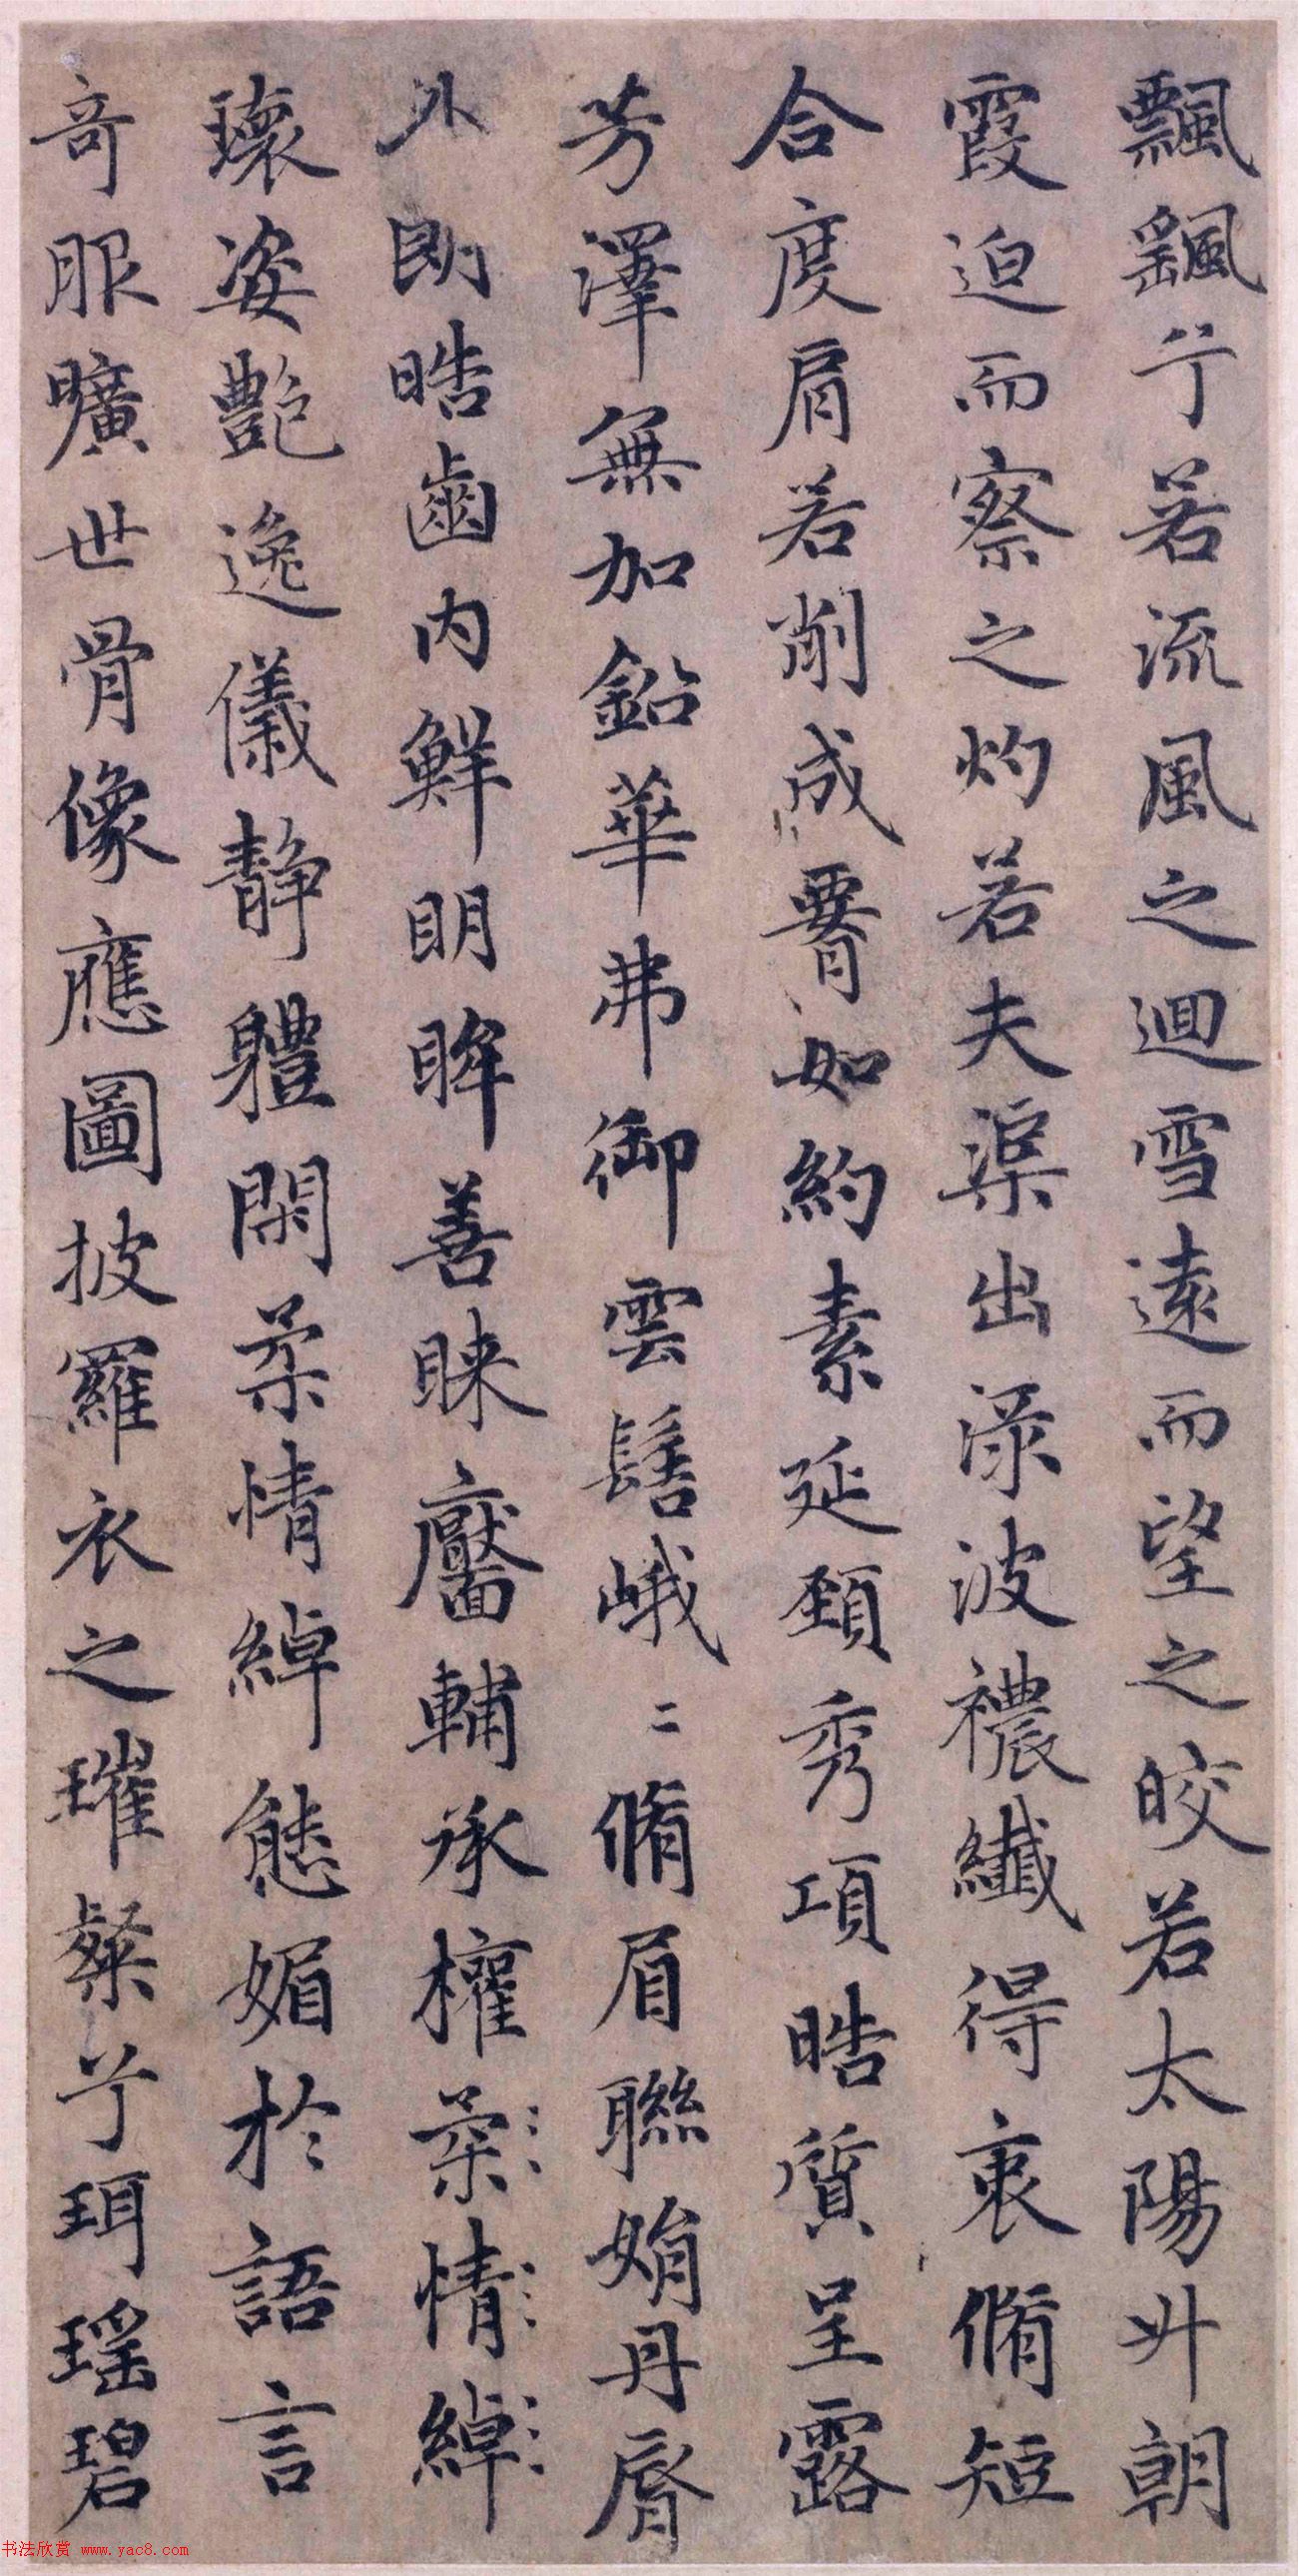 飄颻兮若流風之迴雪遠而望之皎若太陽升朝
霞迫而察之灼若夫渠出淥波襛纖得衷脩短
合度肩若削成䙅如約素延頸秀項皓質呈露
芳澤無加鉛華弗御雲髻峨〻脩眉聯娟丹脣
外朗皓齒內鮮眀眸善睞靨輔承權柔情綽
瓌姿艷逸儀靜軆閑柔情綽態媚於語言
奇服曠世骨像應圖披羅衣之璀粲兮珥瑤碧
书法欣赏 www.yac8.com